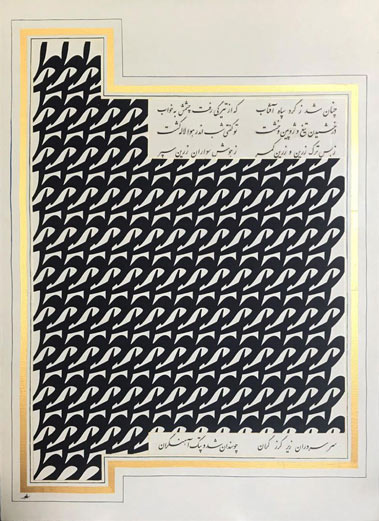 چنان شد ز گرد سپاه آفتاب که از تیرگی رفت چشمش به خواب
درخشیدن تیغ و ژوپین و خشت تو گفتی شب اندر هوا لاله کشت
ز بس ترگ زرین و زرین کمر ز جوشن سواران زرین سپر
سر سروران زیر گرز گران چو سندان شد و پتک آهنگران